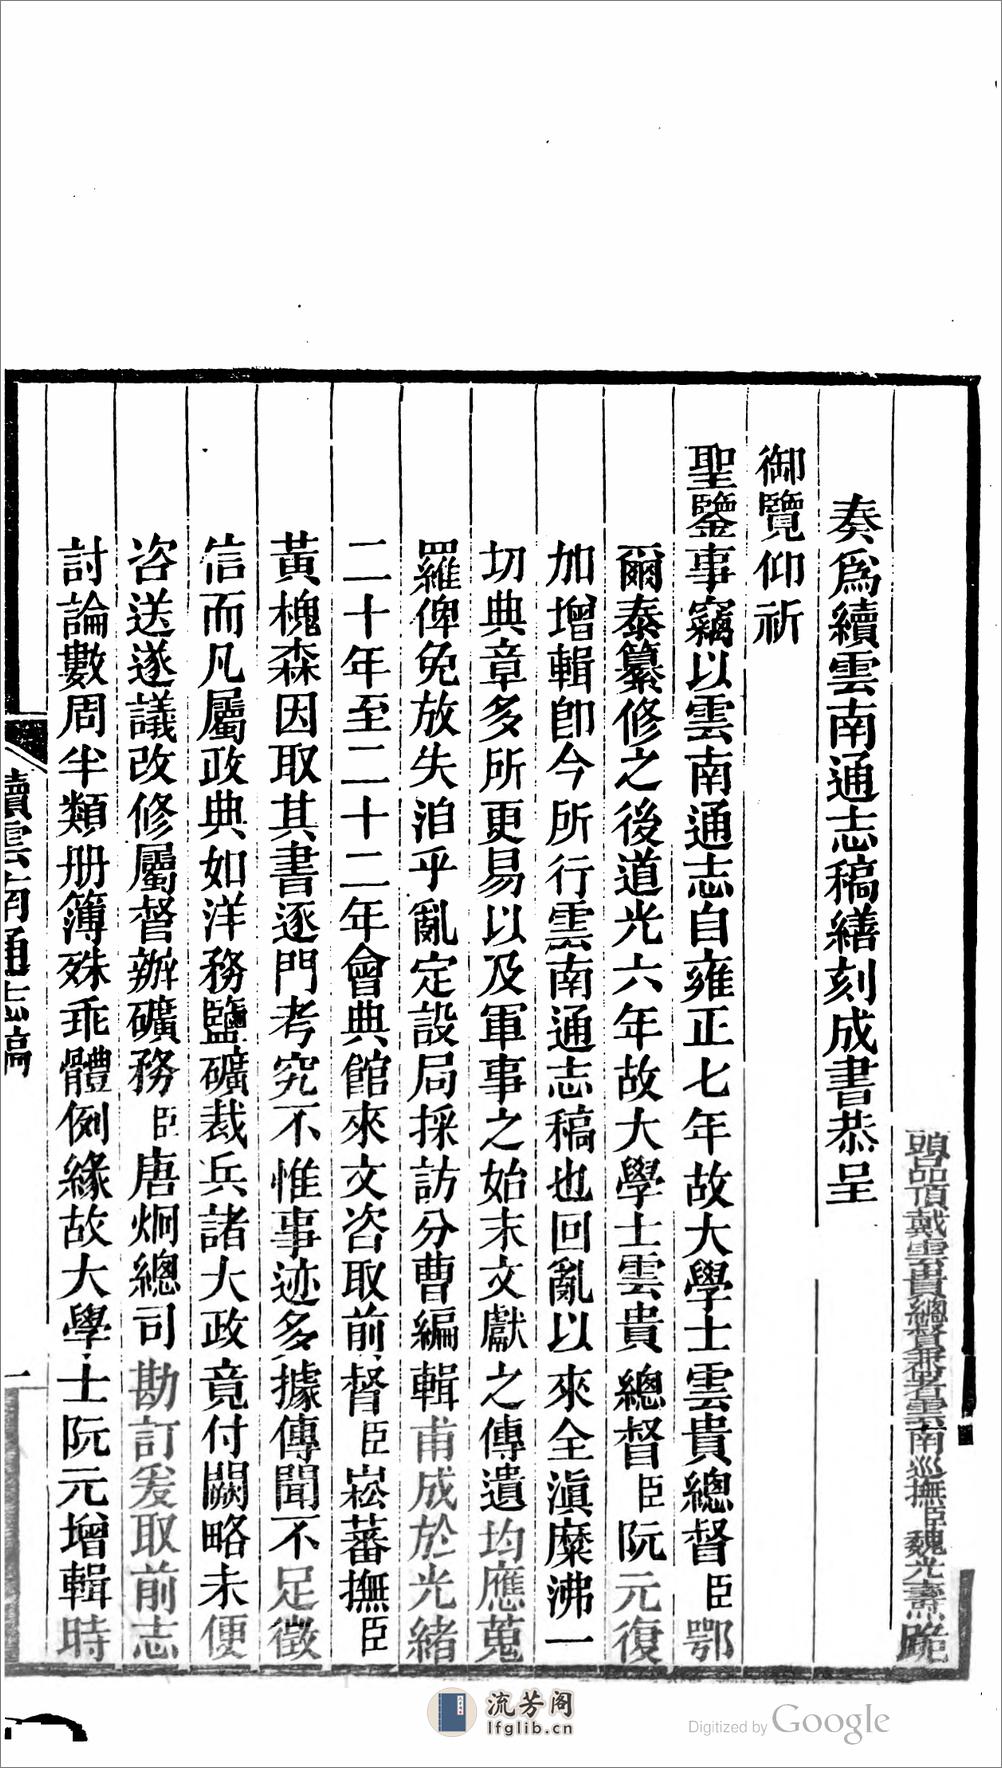 頭品頂戴雲貴總督兼署雲南巡撫臣魏光燾跪
奏爲續雲南通志稿繕刻成書恭呈
御覽仰祈
聖鑒事竊以雲南通志自雍正七年故大學士雲貴總督臣鄂
爾泰纂修之後道光六年故大學士雲貴總督臣阮元復
加增輯卽今所行雲南通志稿也回亂以來全滇糜沸一
切典章多所更易以及軍事之始末文獻之傳遺均應蒐
羅俾免放失洎乎亂定設局採訪分曹編輯甫成於光緒
二十年至二十二年會典館來文咨取前督臣崧蕃撫臣
黃槐森因取其書逐門考究不惟事迹多據傳聞不足徵
信而凡屬政典如洋務鹽礦裁兵諸大政竟付闕略未便
咨送遂議改修屬督辦礦務臣唐炯總司勘訂爰取前志
討論數周半類册簿殊乖體例緣故大學士阮元增輯時
續雲南通志稿
一
流芳阁
lfglib.cn
Digitized by Google